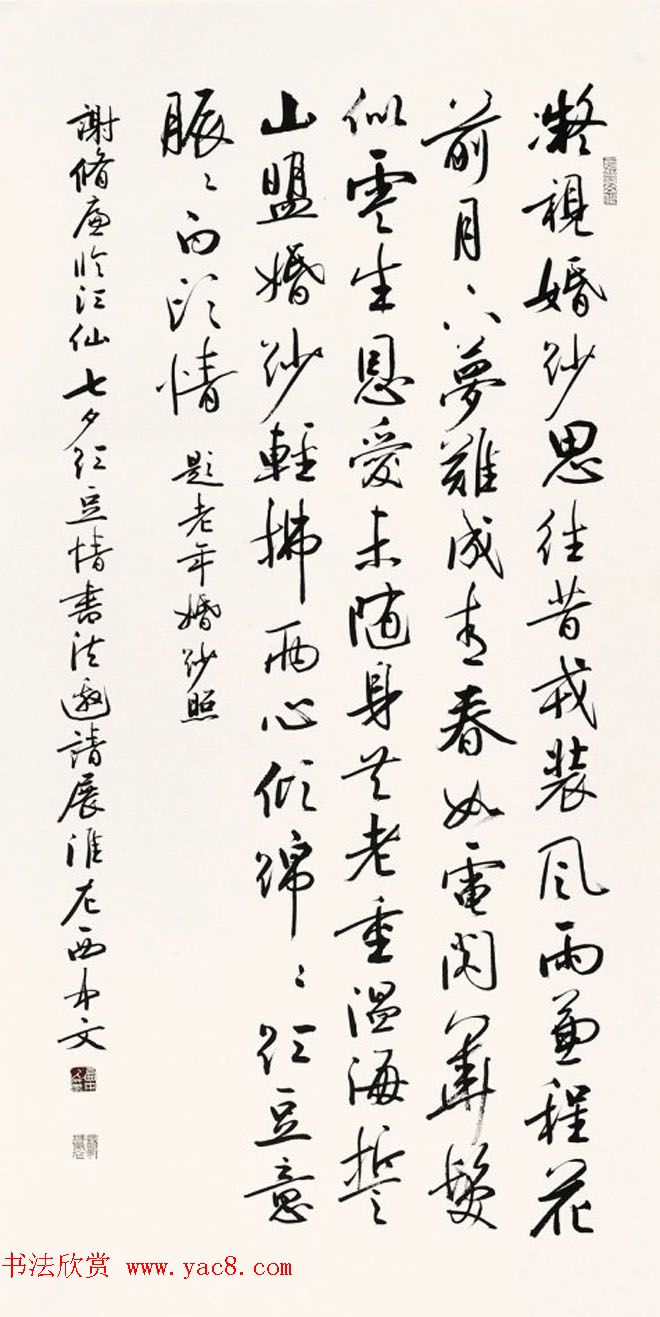 凝視婚紗思往昔戎裝風雨兼程花
前月下夢難成青春如電閃華髮
似雲生恩愛未随身共老重温海誓
山盟婚紗輕拂兩心傾綿々紅豆意
脈々白頭情 題老年婚紗照
謝脩廉臨江仙七夕紅豆情書法邀請展淮左西文
书法欣赏 www.yac8.com